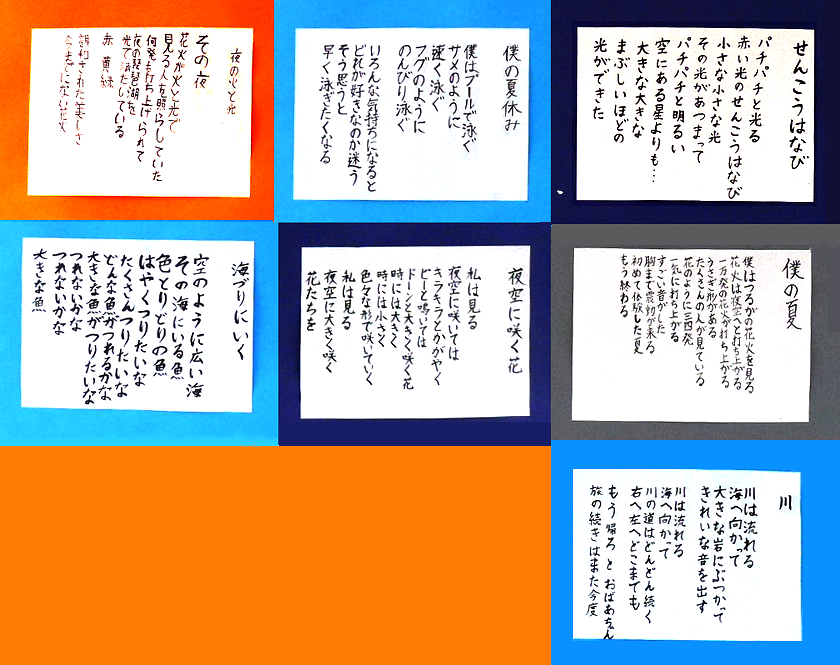 夜の火と光
その夜
花火が火と光で
見る人を照らしていた
何発も打ち上げられて
夜の琵琶湖を
光で満たいている
赤 黄緑
調和された美しさ
今までにない花火
僕の夏休み
僕はプールで泳ぐ
サメのように
速く泳ぐ
フグのように
のんびり泳ぐ
いろんな気持ちになると
どれが好きなのか迷う
そう思うと
早く泳ぎたくなる
せんこうはなび
パチパチと光る
赤い光のせんこうはなび
小さな小さな光
その光があつまって
パチパチと明るい
空にある星よりも…
大きな大きな
まぶしいほどの
光ができた
海づりにいく
空のように広い海
その海にいる魚
色とりどりの魚
はやくつりたいな
たくさんつりたいな
どんな魚がつれるかな
大きな魚がつりたいな
つれないかな
つれないかな
大きな魚
夜空に咲く花
私は見る
夜空に咲いては
キラキラとかがやく
ピーと鳴いては
ドーンと大きく咲く花
時には大きく
時には小さく
色々な形で咲いていく
私は見る
夜空に大きく咲く
花たちを
僕の夏
僕はつるがの花火を見る
花火は夜空へと打ち上がる
一万発の花火が打ち上がる
うさぎ形がある
たくさんの人が見ている
花のように三四発
一気に打ち上がる
すごい音がした
胸まで震動が来る
初めて体験した夏
もう終わる
川
川は流れる
海へ向かって
大きな岩にぶつかって
きれいな音を出す
川は流れる
海へ向かって
川の道はどんどん続く
右へ左へどこまでも
もう帰ろとおばあちゃん
旅の続きはまた今度